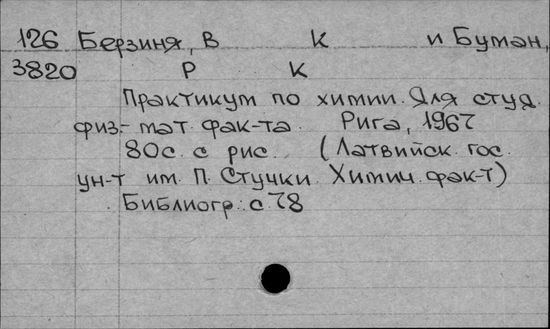 126 Берзиня, В К и Буман,
3820 Р К
Практикум по химии. Для студ.
физ.-мат. фак-та. Рига, 1967
80с. с рис. (Латвийск. гос.
ун-т им. П. Стучки. Химич. фак-т)
Библиогр.: с 78